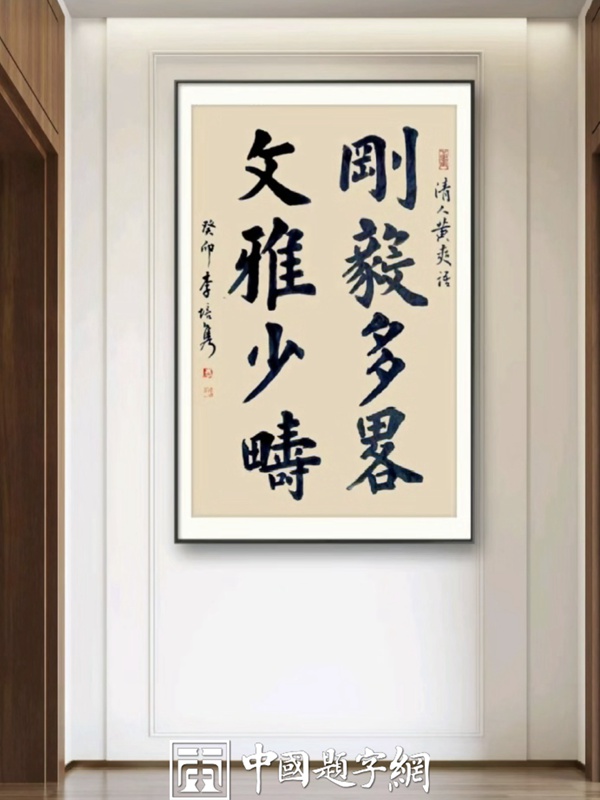 清人黄爽语
剛毅多畧
文雅少疇
癸卯李培隽
中國題字網